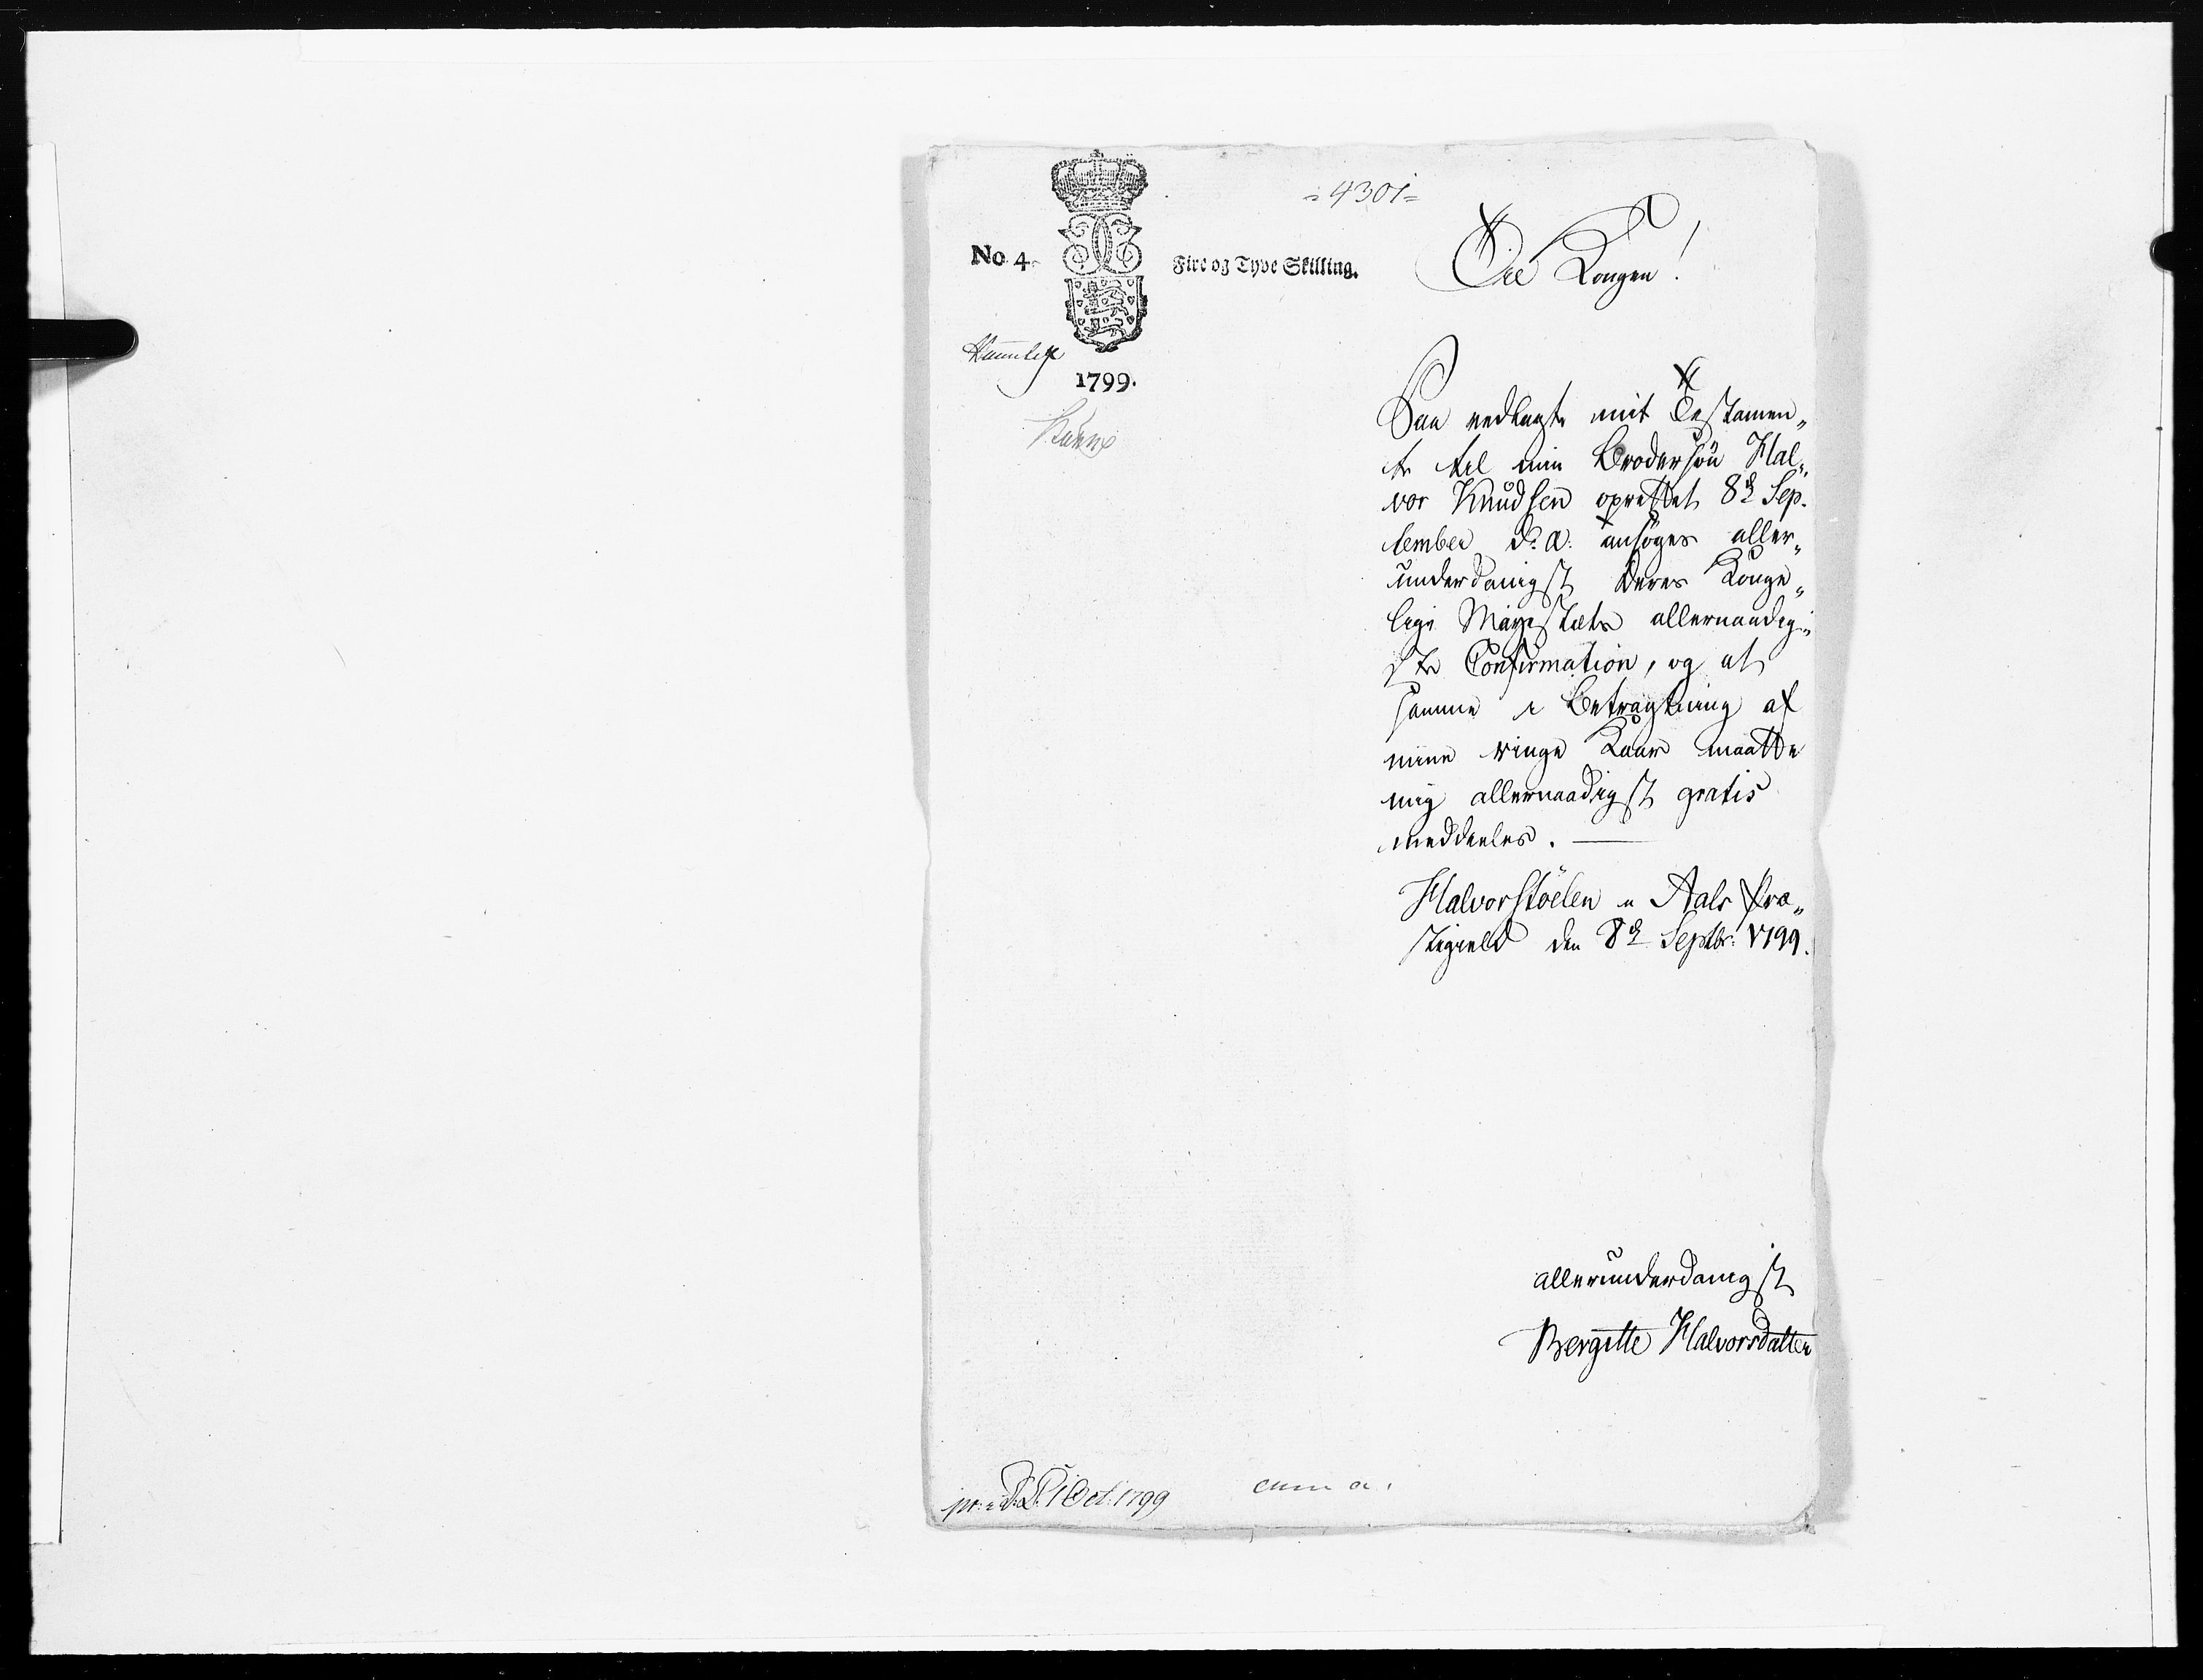 =4301=
No 4.
Fire og Tyve Skilling.
Til Kongen!
1799.
Paa vedlagte mit Testamen„
te til min Brodersön Hal„
vor Knudsen oprettet 8de Sep„
tember d: A: ansöges aller„
underdanigst Deres Konge„
lige Mayestæts allernaadig„
ste Confirmation, og at
samme i Betragtning af
mine ringe Kaar maatte
mig allernaadigst gratis
meddeeles.
Halvorstöelen i Aals Præ„
stegield den 8de Septbr: 1799.
allerunderdanigst
Bergitte Halvorsdatter
pr: 1 Oct: 1799
cum a.